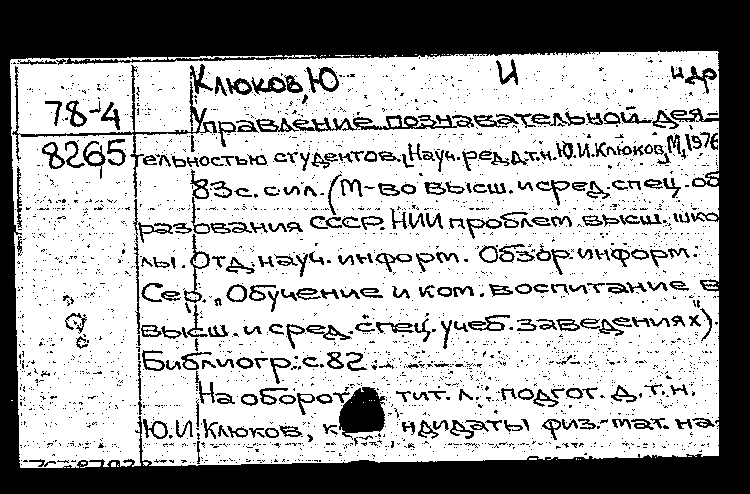 Клюков, Ю И и др
78-4 Управление познавательной дея-
8265 тельностью студентов. [Науч. ред. д.т.н. Ю.И. Клюков, М., 1976
83 с. с ил. (М-во высш. и сред. спец. об
разования СССР. НИИ проблем высш. шко
лы. Отд. науч. информ. Обзор. информ.
Сер. „Обучение и ком. воспитание в
высш. и сред. спец. учеб. заведениях").
Библиогр.: с. 82
На оборот тит. л.: подгот. д.т.н.
Ю.И. Клюков, к ндидаты физ.-мат. на